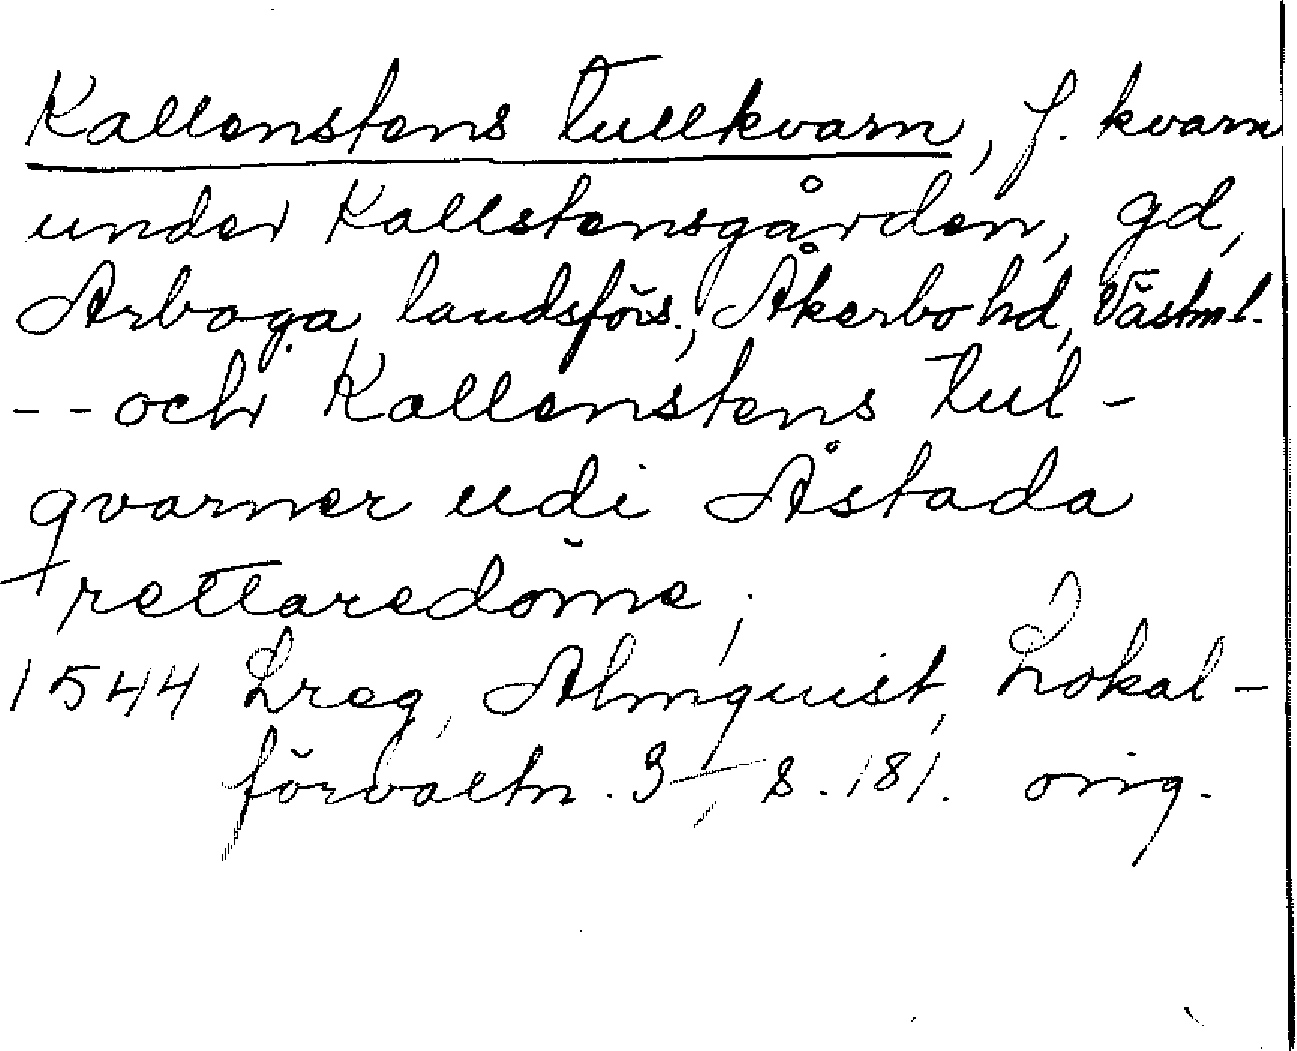 Kallenstens tullkvarn, f. kvarn
under Kallstensgården, gd,
Arboga landsförs., Åkerbo hd, Västml.
-- och Kallenstens tul-
qvarner udi Åstada
rettaredöme,
1544 Lreg, Almquist, Lokal-
förvaltn. 3, s. 181. orig.